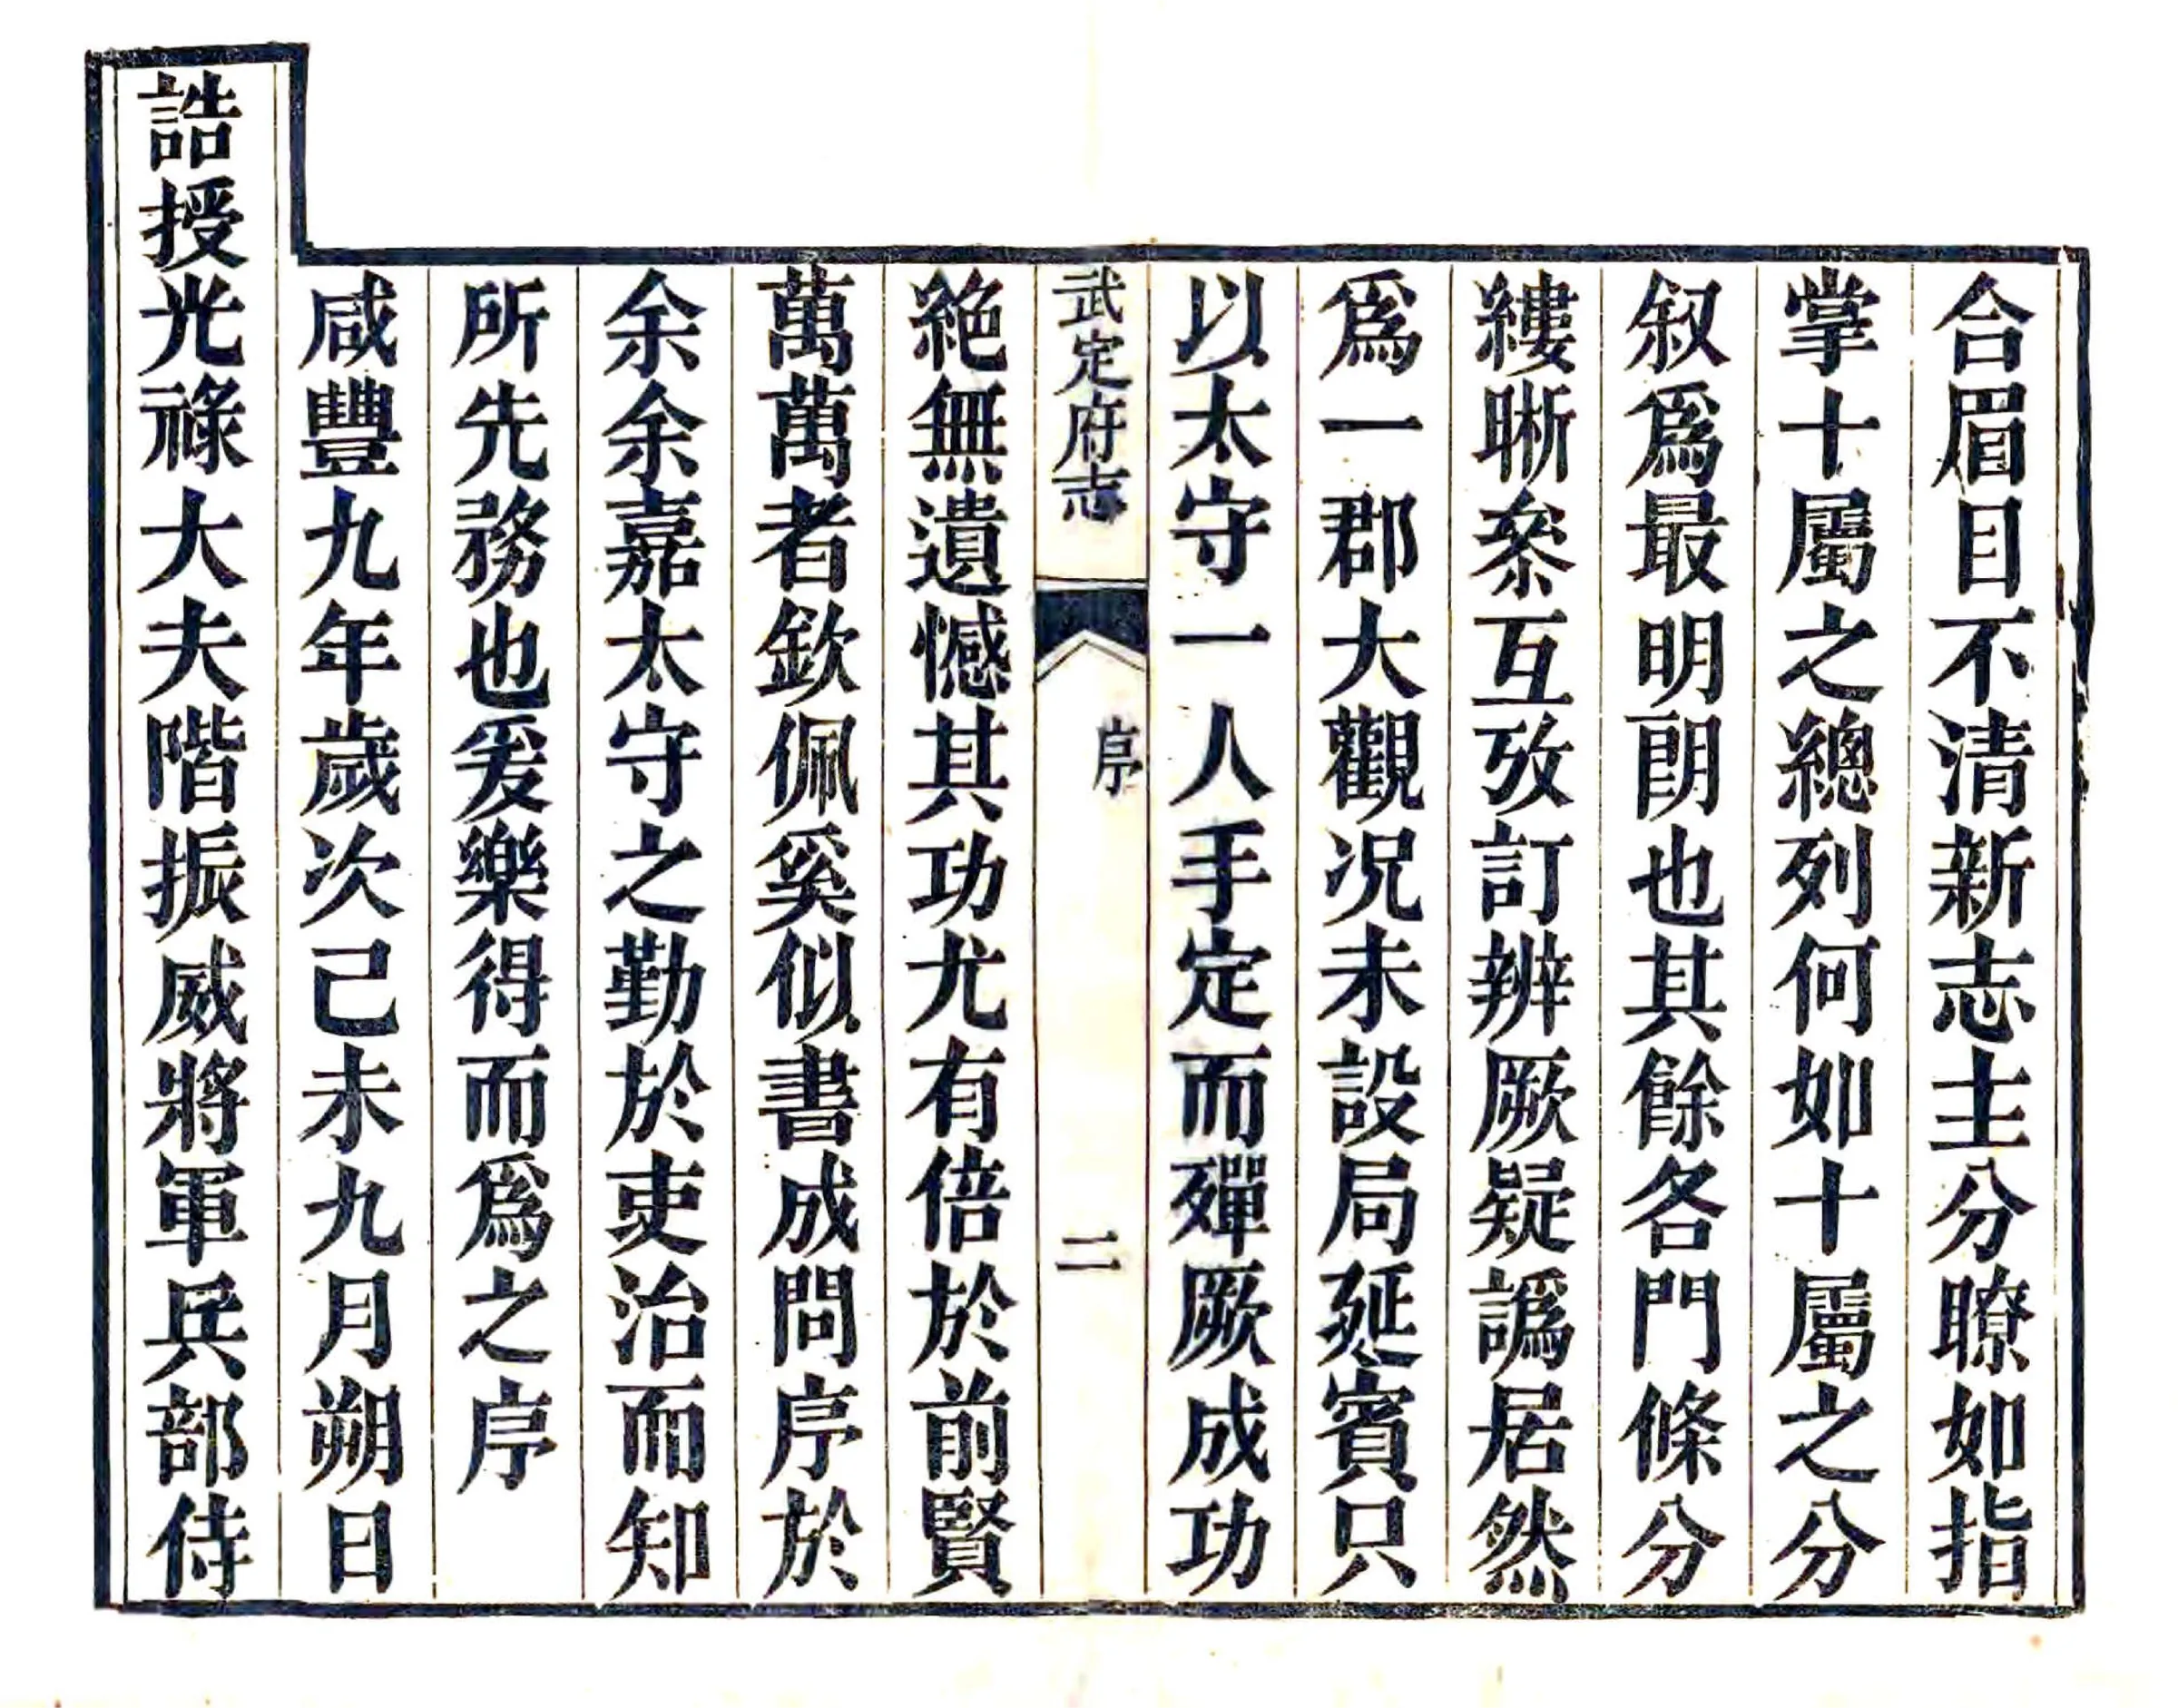 合眉目不清新志主分瞭如指
掌十屬之總列何如十屬之分
叙爲最明朗也其餘各門條分
縷晰叅互攷訂辨厥疑譌居然
爲一郡大觀况未設局延賓只
以太守一人手定而殫厥成功
武定府志
序
二
絶無遺憾其功尤有倍於前賢
萬萬者欽佩奚似書成問序於
余余嘉太守之勤於吏治而知
所先務也爰樂得而爲之序
咸豐九年歲次己未九月朔日
誥授光祿大夫階振威將軍兵部侍